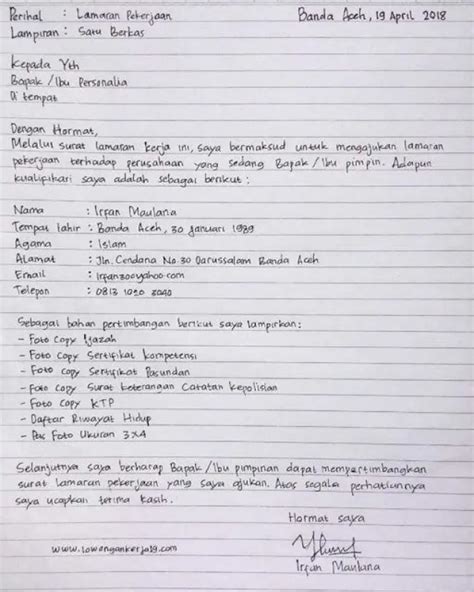 Perihal : Lamaran Pekerjaan Banda Aceh, 19 April 2018
Lampiran : Satu Berkas
Kepada Yth
Bapak /Ibu Personalia
Di tempat
Dengan Hormat,
Melalui surat lamaran kerja ini, saya bermaksud untuk mengajukan lamaran
pekerjaan terhadap perusahaan yang sedang Bapak /Ibu pimpin. Adapun
kualifikasi saya adalah sebagai berikut :
Nama : Irfan Maulana
Tempat lahir : Banda Aceh, 30 Januari 1989
Agama : Islam
Alamat : Jln. Cendana No.30 Darussalam Banda Aceh
Email : Irfanzooyahoo.com
Telepon : 0813 1020 3040
Sebagai bahan pertimbangan berikut saya lampirkan:
- Foto Copy Ijazah
- Foto Copy Sertifikat Kompetensi
- Foto Copy Sertifikat Pasundan
- Foto Copy Surat Keterangan Catatan Kepolisian
- Foto Copy KTP
- Daftar Riwayat Hidup
- Pas Foto Ukuran 3X4
Selanjutnya saya berharap Bapak /Ibu pimpinan dapat mempertimbangkan
surat lamaran pekerjaan yang saya ajukan. Atas segala perhatiannya
saya ucapkan terima kasih.
Hormat saya
www.lowongankerja19.com
Irfan Maulana